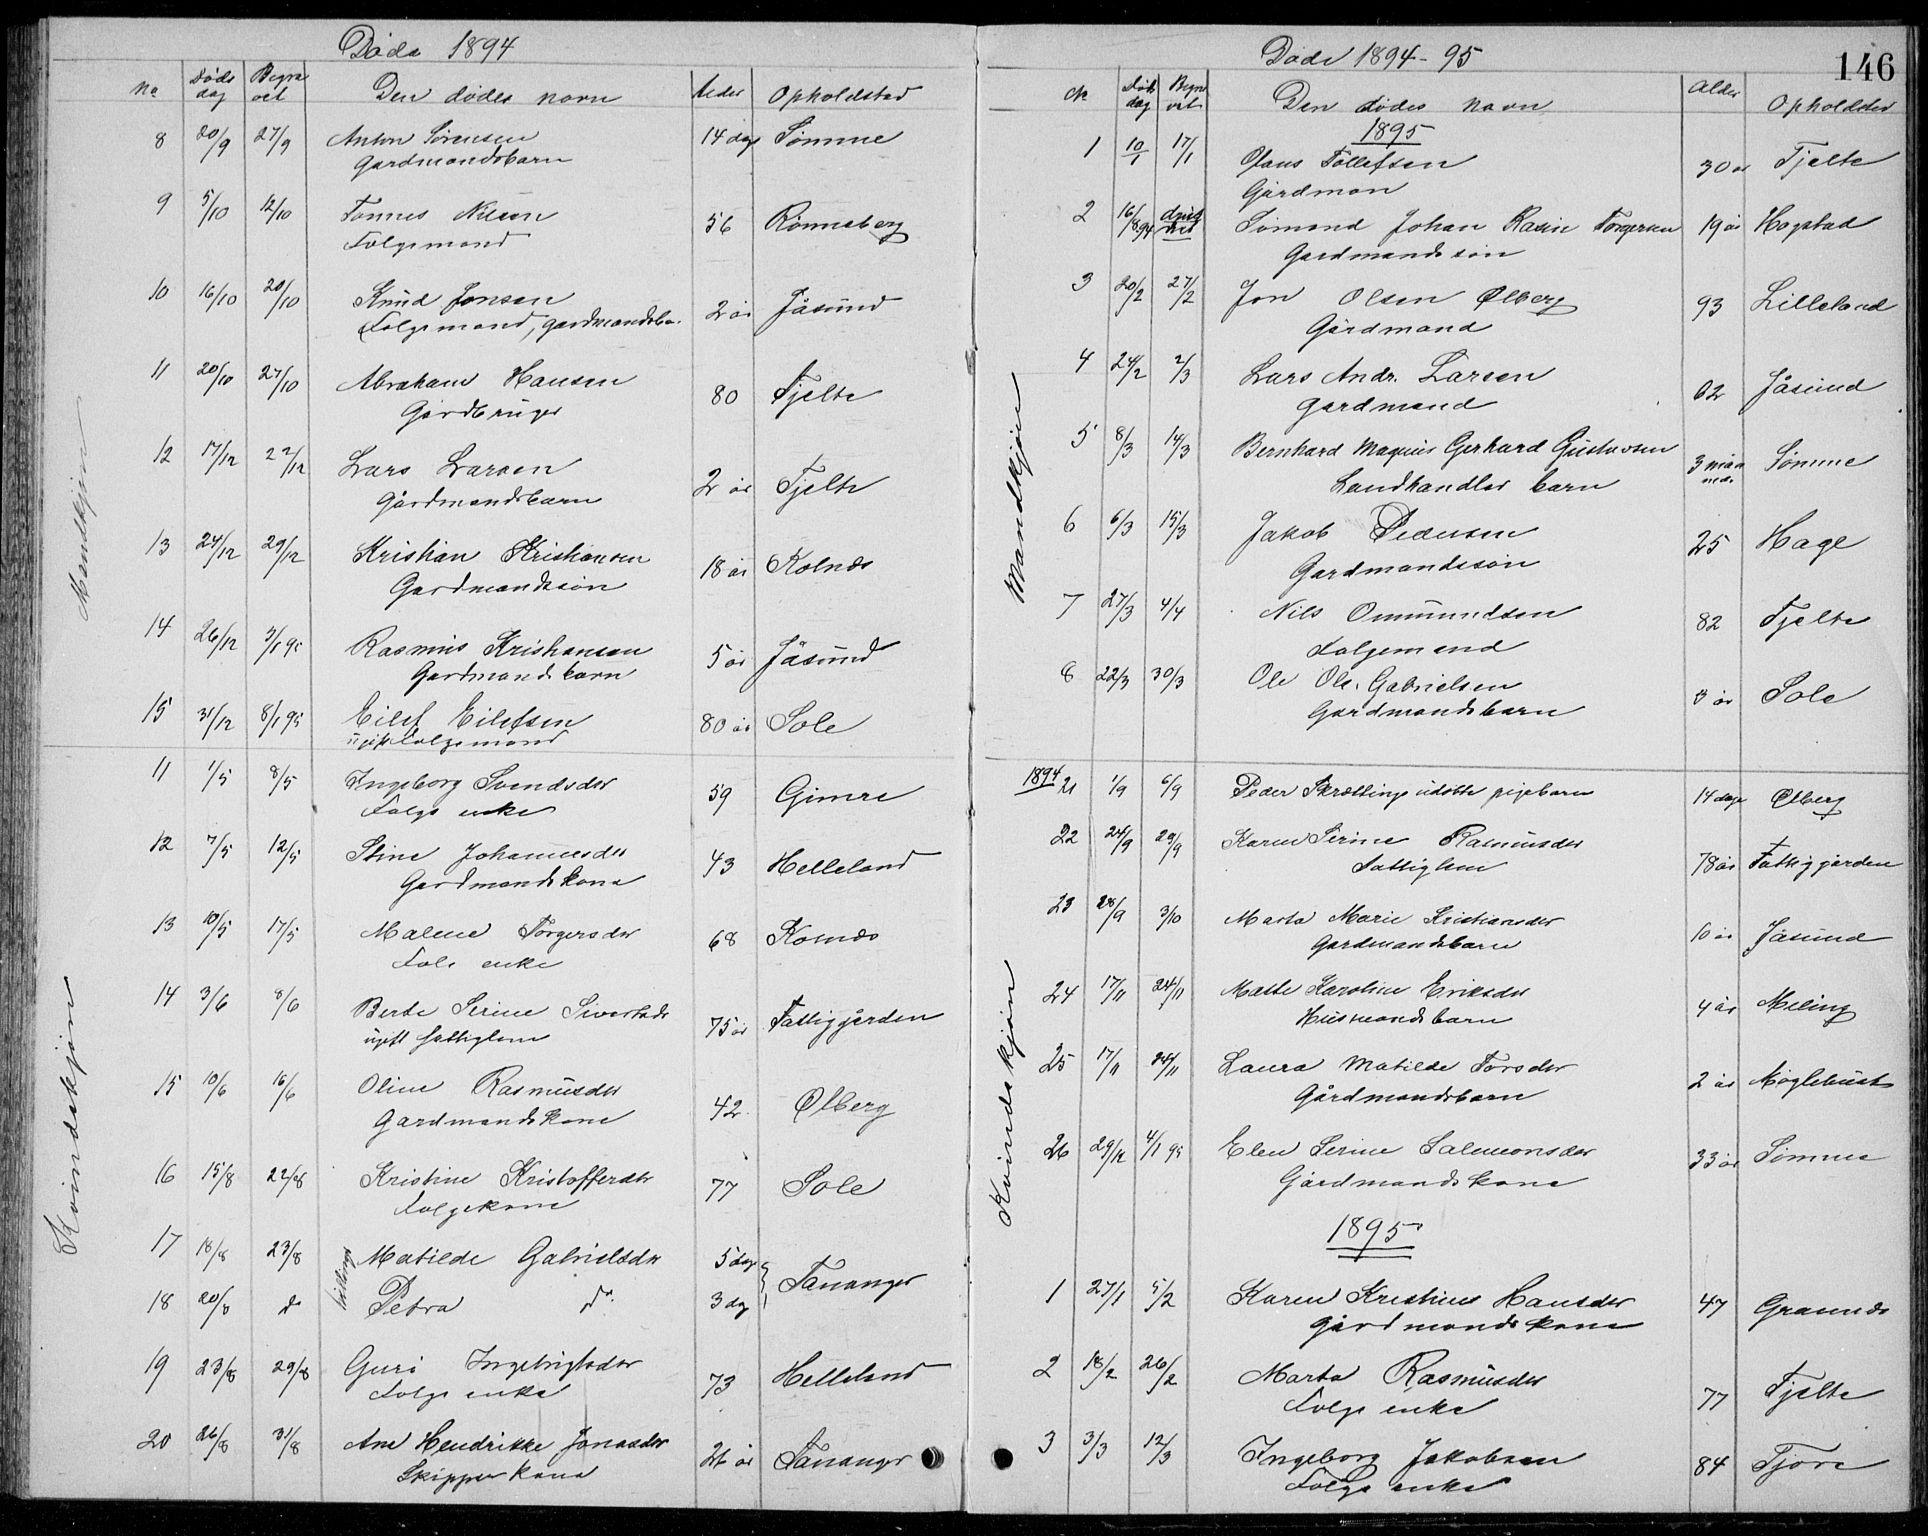 Døde 1894
No Døds dag Begra vet Den dødes navn Alder Opholdsted
Mandkjøn
8 20/9 27/9 Anton Sørensen 14 dage Sømme
Gardmandsbarn
9 5/10 12/10 Tønnes Nilsen 56 Rønneberg
Folgemand
10 16/10 20/10 Knud Jonsen 2 år Jåsund
Folgemand, gardmandsba.
11 20/10 27/10 Abraham Hansen 80 Tjelte
Gårdbruger
12 17/12 22/12 Lars Larsen 2 år Tjelte
Gårdmandsbarn
13 24/12 29/12 Kristian Kristiansen 18 år Kolnæs
Gardmandssøn
14 26/12 3/1 95 Rasmus Kristiansen 5 år Jåsund
Gardmandsbarn
15 31/12 8/1 95 Eilef Eilefsen 80 år Sole
ugift Folgemand
Kvindekjøn
11 1/5 8/5 Ingeborg Svendsdtr 59 Gimre
Folge enke
12 7/5 12/5 Stine Johannesdtr 43 Helleland
Gardmandskone
13 10/5 17/5 Malene Torgersdtr 68 Kolnæs
Folg enke
14 3/6 8/6 Berte Serine Sivertsdtr 75 år Fattiggården
ugift fattiglem
15 10/6 16/6 Oline Rasmusdtr 42 Ølberg
Gardmandskone
16 15/8 22/8 Kristine Kristoffersdtr 77 Sole
Folgekone
17 18/8 23/8 tvillinger Matilde Gabrielsdtr 5 dage Tananger
18 20/8 do Petra do 3 dag
19 23/8 29/8 Guri Ingebrigtsdtr 73 Helleland
Folge enke
20 26/8 31/8 Ane Hendrikke Jonasdtr 26 år Tananger
Skipperkone
Døde 1894-95
146
No Døds dag Begra vet Den dødes navn Alder Opholdsted
1895
Mandkjøn
1 10/1 17/1 Olaus Tollefsen 30 år Tjelte
Gårdman
2 16/8 94 Sømand Johan Rasin Torgersen 19 år Hogstad
Gardmandssøn
3 20/2 27/2 Jon Olsen Ølberg 93 Lilleland
Gårdmand
4 24/2 2/3 Lars Andr. Larsen 62 Jåsund
Gardmand
5 8/3 14/3 Bernhard Magnus Gerhard Gustavsen 3 Sømme
Landhandler barn
6 6/3 15/3 Jakob Pedersen 25 Hage
Gardmandssøn
7 27/3 4/4 Nils Ommundsen 82 Tjelte
Folgemand
8 22/3 30/3 Ole Ols. Gabrielsen år Sole
Gardmandsbarn
Kvindekjøn
1894 21 1/9 6/9 Peder Skrettings udøbte pigebarn 14 dage Ølberg
22 24/9 29/9 Karen Serine Rasmusdtr 78 år Fattiggården
Fattiglem
23 28/9 3/10 Marta Marie Kristiansdtr 10 år Jåsund
Gardmandsbarn
24 17/11 24/11 Mette Karoline Eriksdtr 4 år Meling
Husmandsbarn
25 17/11 24/11 Laura Matilde Torsdtr 2 år Møglebust
Gårdmandsbarn
26 29/12 4/1 95 Elen Serine Salemonsdtr 33 år Sømme
Gårdmandskone
1895
1 27/1 5/2 Karen Kristine Hansdtr 47 Grannes
Gårdmandskone
2 18/2 26/2 Marta Rasmusdtr 77 Tjelte
Folge enke
3 3/3 12/3 Ingeborg Jakobsen 84 Tjora
Folge enke